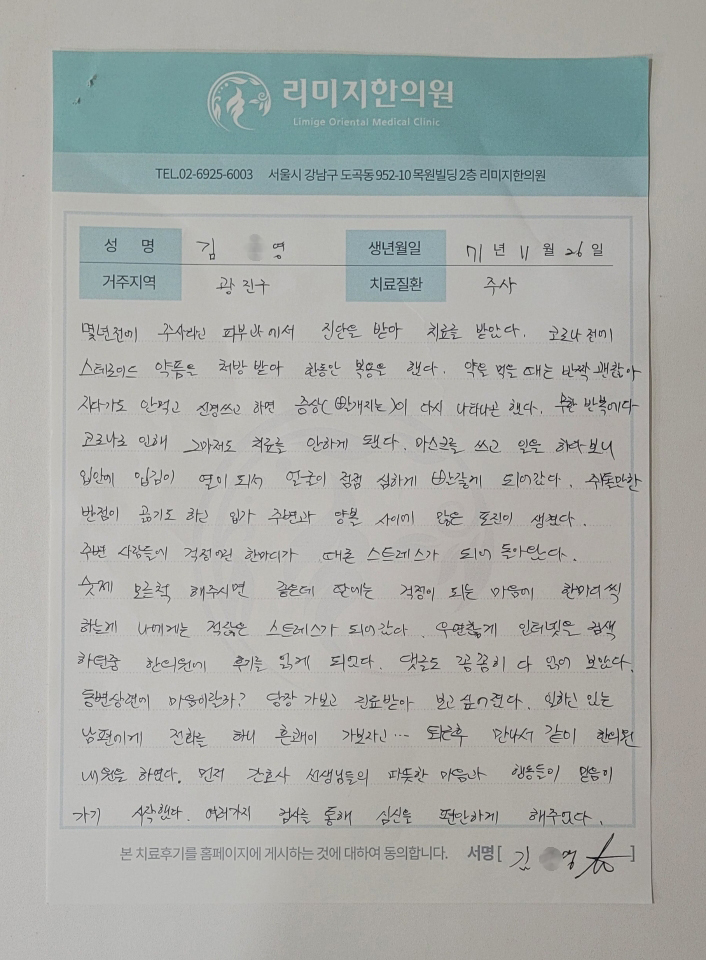 리미지한의원
Limige Oriental Medical Clinic
TEL.02-6925-6003 서울시 강남구 도곡동 952-10 목원빌딩 2층 리미지한의원
성 명 김 영 생년월일 71 년 11 월 26 일
거주지역 광진구 치료질환 주사
몇년전에 주사라는 피부과에서 진단을 받아 치료를 받았다. 코로나 전에
스테로이드 약품을 처방 받아 한동안 복용을 했다. 약을 먹을 때는 반짝 괜찮아
지다가도 안먹고 신경쓰고 하면 증상(빨개지는)이 다시 나타나곤 했다. 반복에다
코로나로 인해 그마저도 치료를 안하게 됐다. 마스크를 쓰고 일을 하다보니
입안에 입김이 열이 되서 얼굴이 점점 심하게 빨갛게 되어갔다. 만한
반점이 곪기도 하고 입가 주변과 양볼 사이에 많은 포진이 생겼다.
주변 사람들에 걱정어린 한마디가 때론 스트레스가 되어 돌아왔다.
숫제 모른척 해주시면 좋은데 딴에는 걱정이 되는 마음에 한마디씩
하는게 나에게는 적잖은 스트레스가 되어갔다. 우연찮게 인터넷을 검색
하던중 한의원에 후기를 읽게 되었다. 댓글도 꼼꼼히 다 읽어 보았다.
동변상련에 마음이랄까? 당장 가보고 진료받아 보고 싶어졌다. 일하고 있는
남편에게 전화를 하니 흔쾌이 가보자고… 퇴근후 만나서 같이 한의원
내원을 하였다. 먼저 간호사 선생님들의 따뜻한 마음과 행동들이 믿음이
가기 시작했다. 여러가지 검사를 통해 심신을 편안하게 해주었다.
본 치료후기를 홈페이지에 게시하는 것에 대하여 동의합니다. 서명 [ 김 영 ]